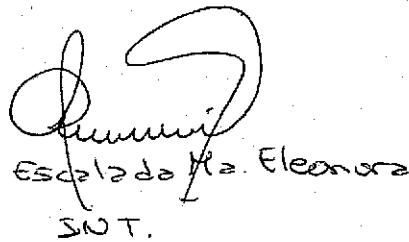 Escalada Ma. Eleonora
SNT.